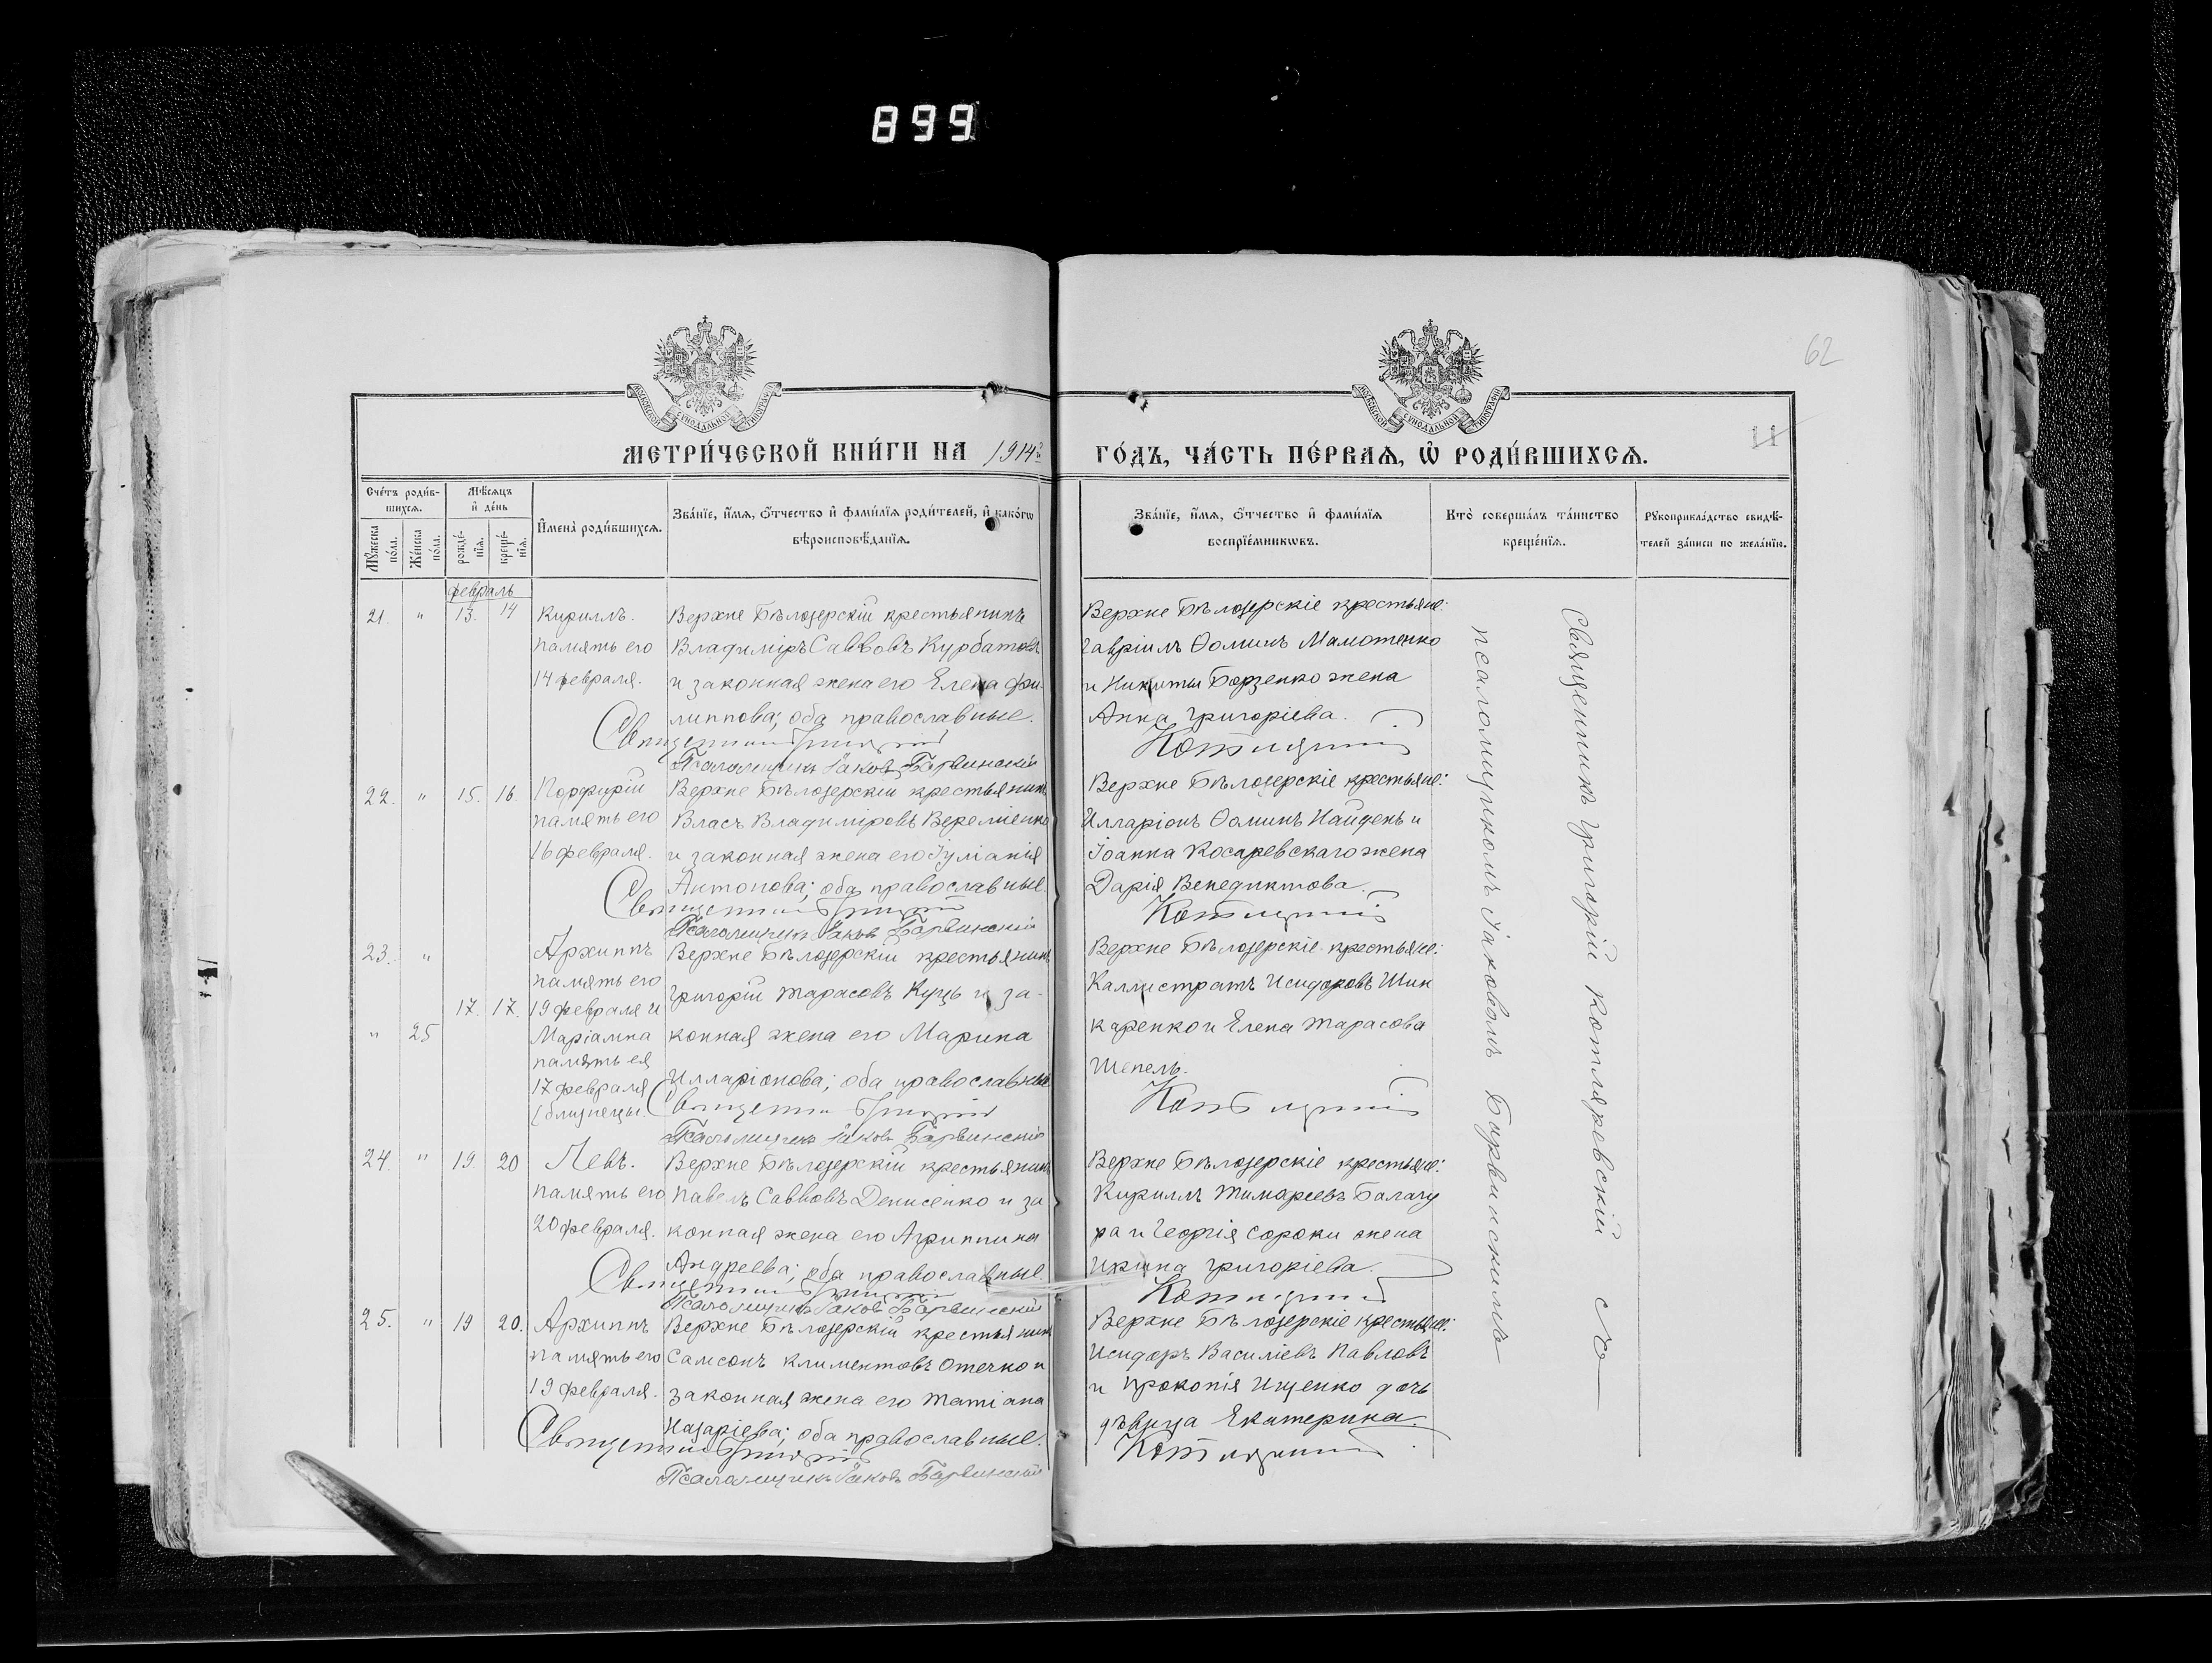 899
62
МОСКОВСКОЙ СУНОДАЛЬНОЙ ТИПОГРАФІИ
МОСКОВСКОЙ СУНОДАЛЬНОЙ ТИПОГРАФІИ
МЕТРИ́ЧЕСКОЙ КНИ́ГИ НА 1914 г.
ГО́ДЪ, ЧА́СТЬ ПЕ́РВАѦ, Ѡ҆ РОДИ́ВШИХСѦ.
11
Сче́тъ роди́в-
шихсѧ.
Мꙋ́жеска
по́ла.
Же́нска
по́ла.
Мѣ́сѧцъ
и҆ де́нь
рожде́-
нїѧ.
креще́-
нїѧ.
И҆мена̀ роди́вшихсѧ.
Зва́нїе, и҆́мѧ, ѻ҆́тчество и҆ фами́лїѧ роди́телей, и҆ како́гѡ
вѣроисповѣ́данїѧ.
Зва́нїе, и҆́мѧ, ѻ҆́тчество и҆ фами́лїѧ
воспрїе́мникѡвъ.
Кто̀ соверша́лъ та́инство
креще́нїѧ.
Рꙋкоприкла́дство свидѣ́-
телей за́писи по жела́нїю.
февраль
21. " 13. 14
Кириллъ.
память его
14 февраля.
Верхне Бѣлозерскій крестьянинъ
Владиміръ Савовъ Курбатовъ
и законная жена его Елена Фи-
липпова; оба православные.
Священникъ Григорій
Псаломщикъ Іаковъ Барвинскій
Верхне Бѣлозерскіе крестьяне:
Гавріилъ Ѳоминъ Мамотенко
и Никиты Борзенко жена
Анна Григоріева.
22. " 15. 16.
Порфирій
память его
16 февраля.
Верхне Бѣлозерскій крестьянинъ
Власъ Владиміровъ Веремienко
и законная жена его Іуліанія
Антонова; оба православные.
Священникъ Григорій
Псаломщикъ Іаковъ Барвинскій
Верхне Бѣлозерскіе крестьяне:
Илларіонъ Ѳоминъ Найденъ и
Іоанна Косаревскаго жена
Дарія Венедиктова.
23. "
Архиппъ
память его
17. 17. 19 февраля и
" 25 Маріамна
память ея
17 февраля
(близнецы.
Верхне Бѣлозерскій крестьянинъ
Григорій Тарасовъ Куць и за-
конная жена его Марина
Илларіонова; оба православные
Священникъ Григорій
Псаломщикъ Іаковъ Барвинскій
Верхне Бѣлозерскіе крестьяне:
Каллистратъ Исидоровъ Шин
каренко и Елена Тарасова
Шепель.
24. " 19. 20
Левъ.
память его
20 февраля.
Верхне Бѣлозерскій крестьянинъ
Павелъ Саввовъ Денисенко и за
конная жена его Агриппина
Андреева; оба православные.
Священникъ Григорій
Псаломщикъ Іаковъ Барвинскій
Верхне Бѣлозерскіе крестьяне:
Кириллъ Тимофеевъ Балагу
ра и Георгія Сороки жена
Ирина Григоріева.
25. " 19 20.
Архиппъ
память его
19 февраля.
Верхне Бѣлозерскій крестьянинъ
Самсонъ Климентовъ Отечко и
законная жена его Татіана
Назаріева; оба православные.
Священникъ Григорій
Псаломщикъ Іаковъ Барвинскій
Верхне Бѣлозерскіе крестьяне:
Исидоръ Василіевъ Павловъ
и Прокопія Ищенко дочь
дѣвица Екатерина.
Священникъ Григорій Котляревскій съ
псаломщикомъ Іаковомъ Барвинскимъ